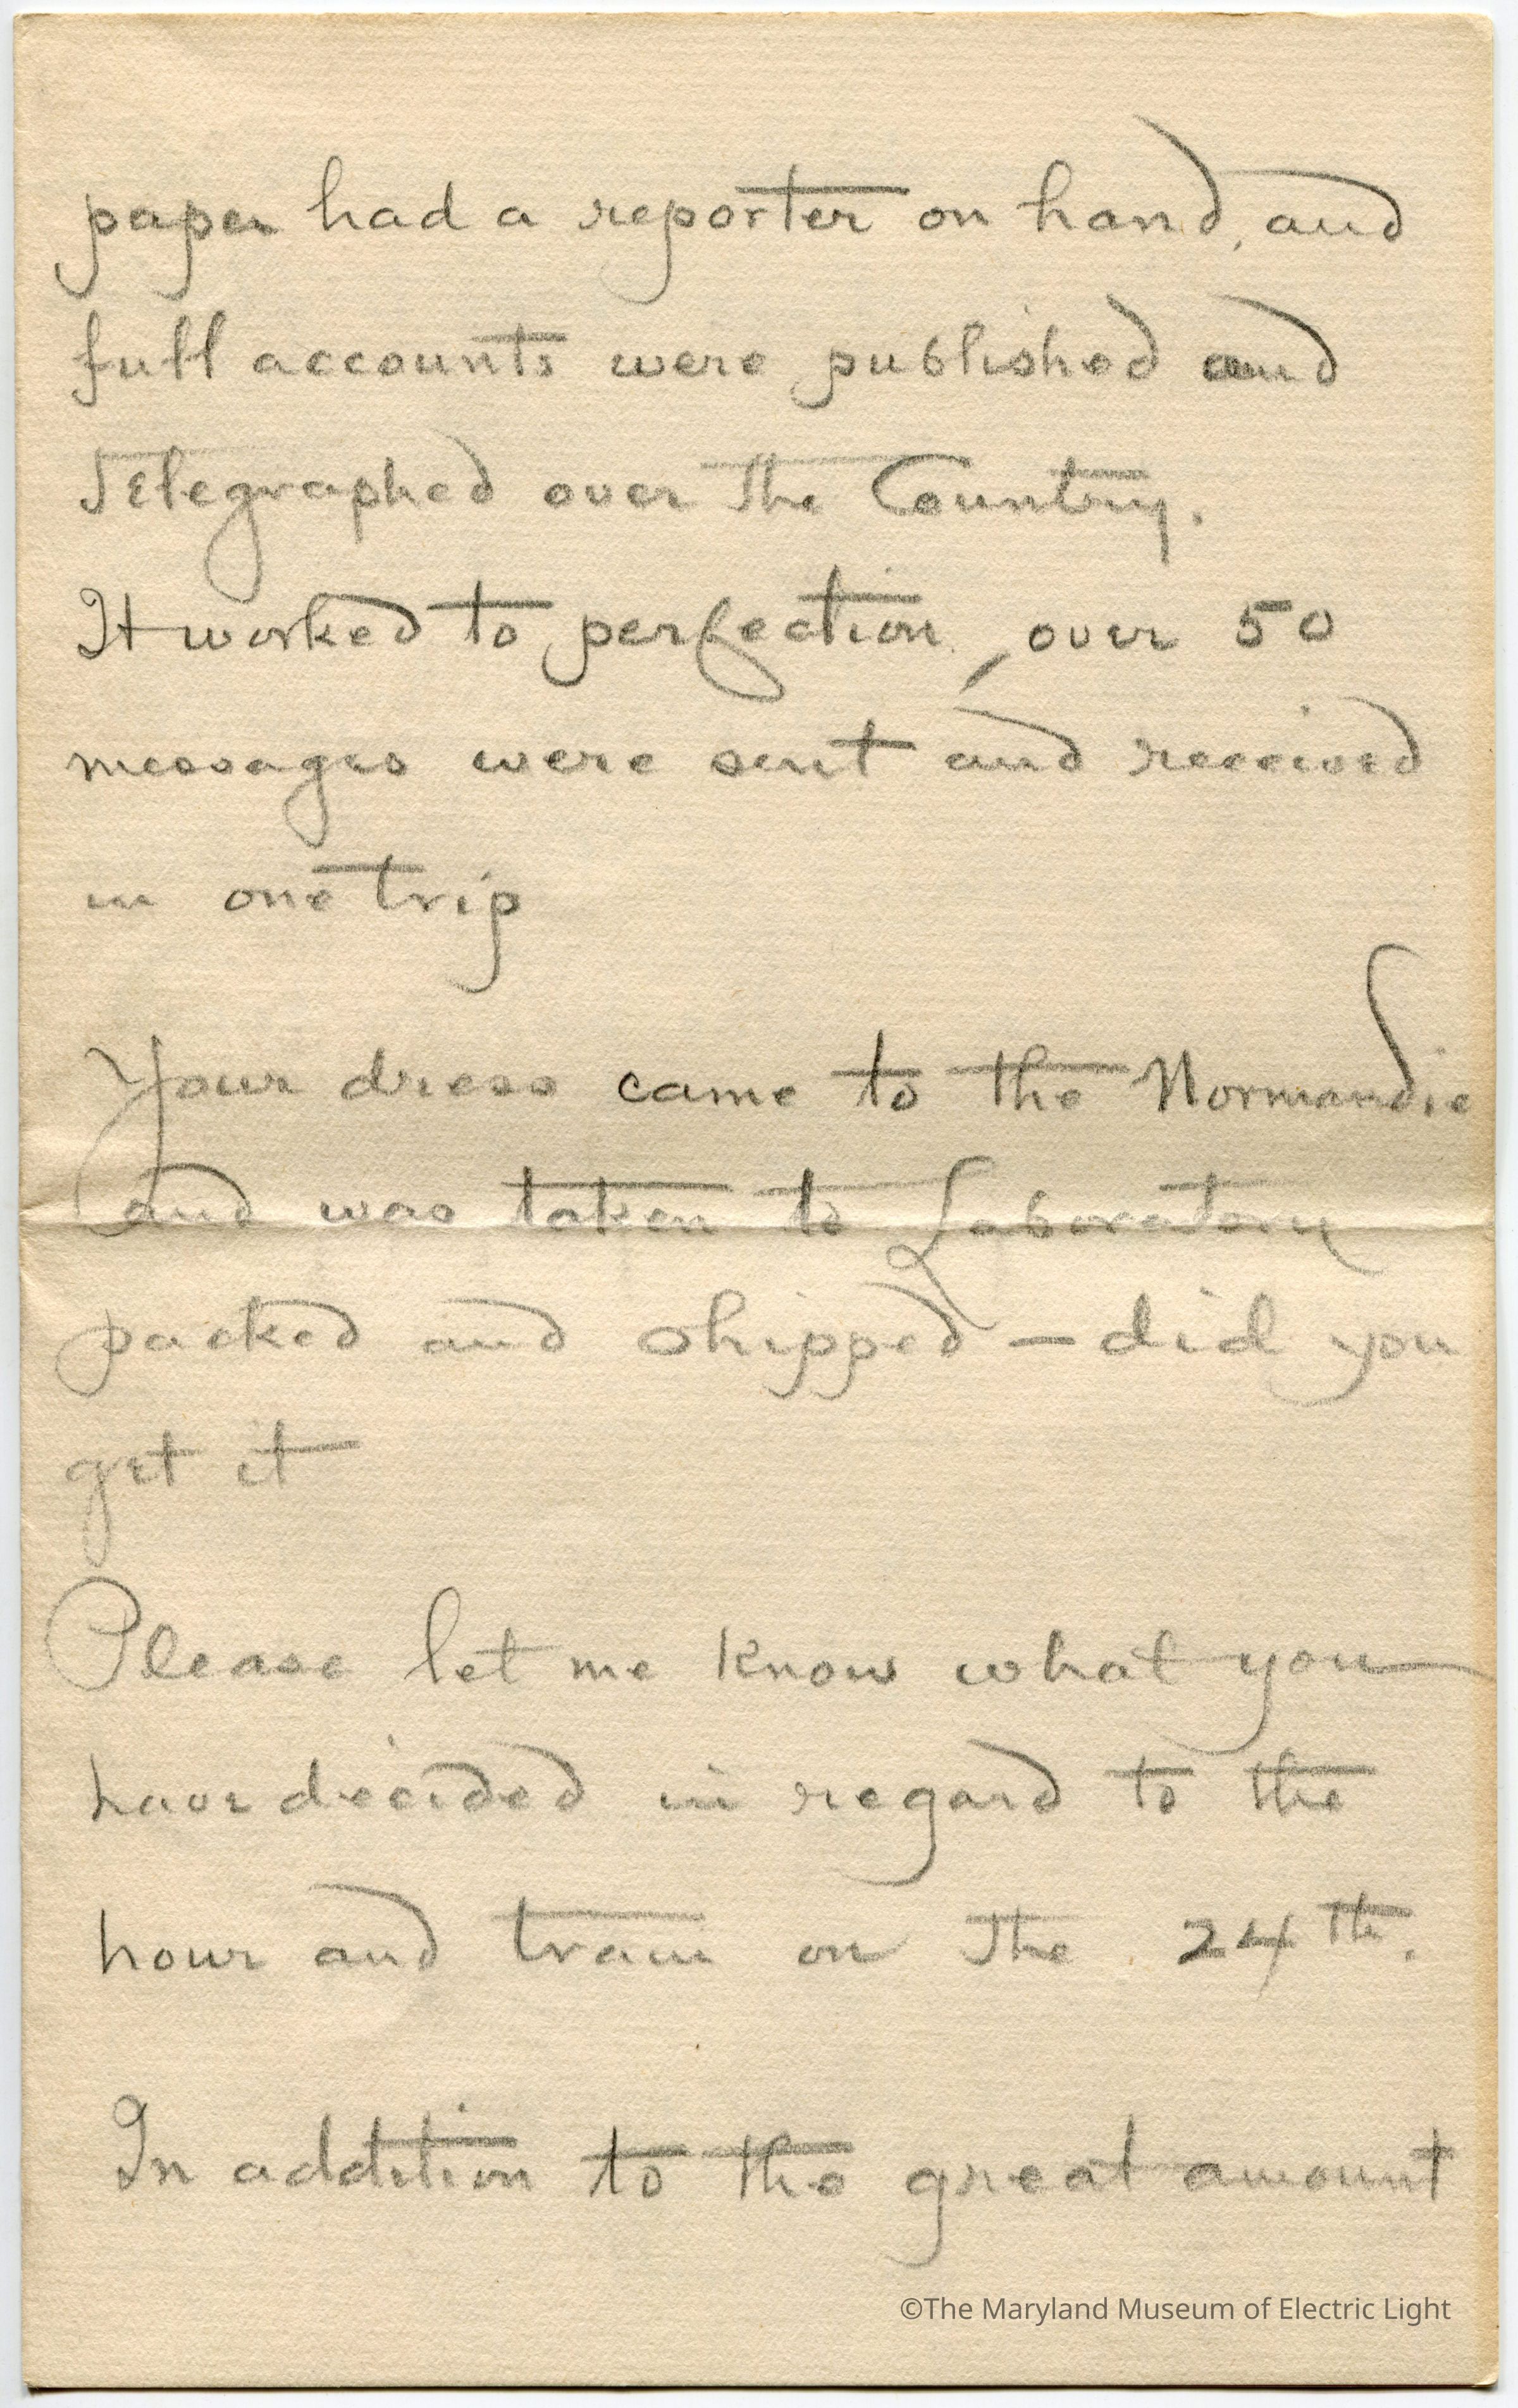 paper had a reporter on hand, and
full accounts were published and
Telegraphed over The Country.
It worked to perfection, over 50
messages were sent and received
in one trip
Your dress came to the Normandie
and was taken to Laboratory
packed and shipped – did you
get it
Please let me know what you
have decided in regard to the
hour and train on The 24th.
In addition to the great amount
©The Maryland Museum of Electric Light